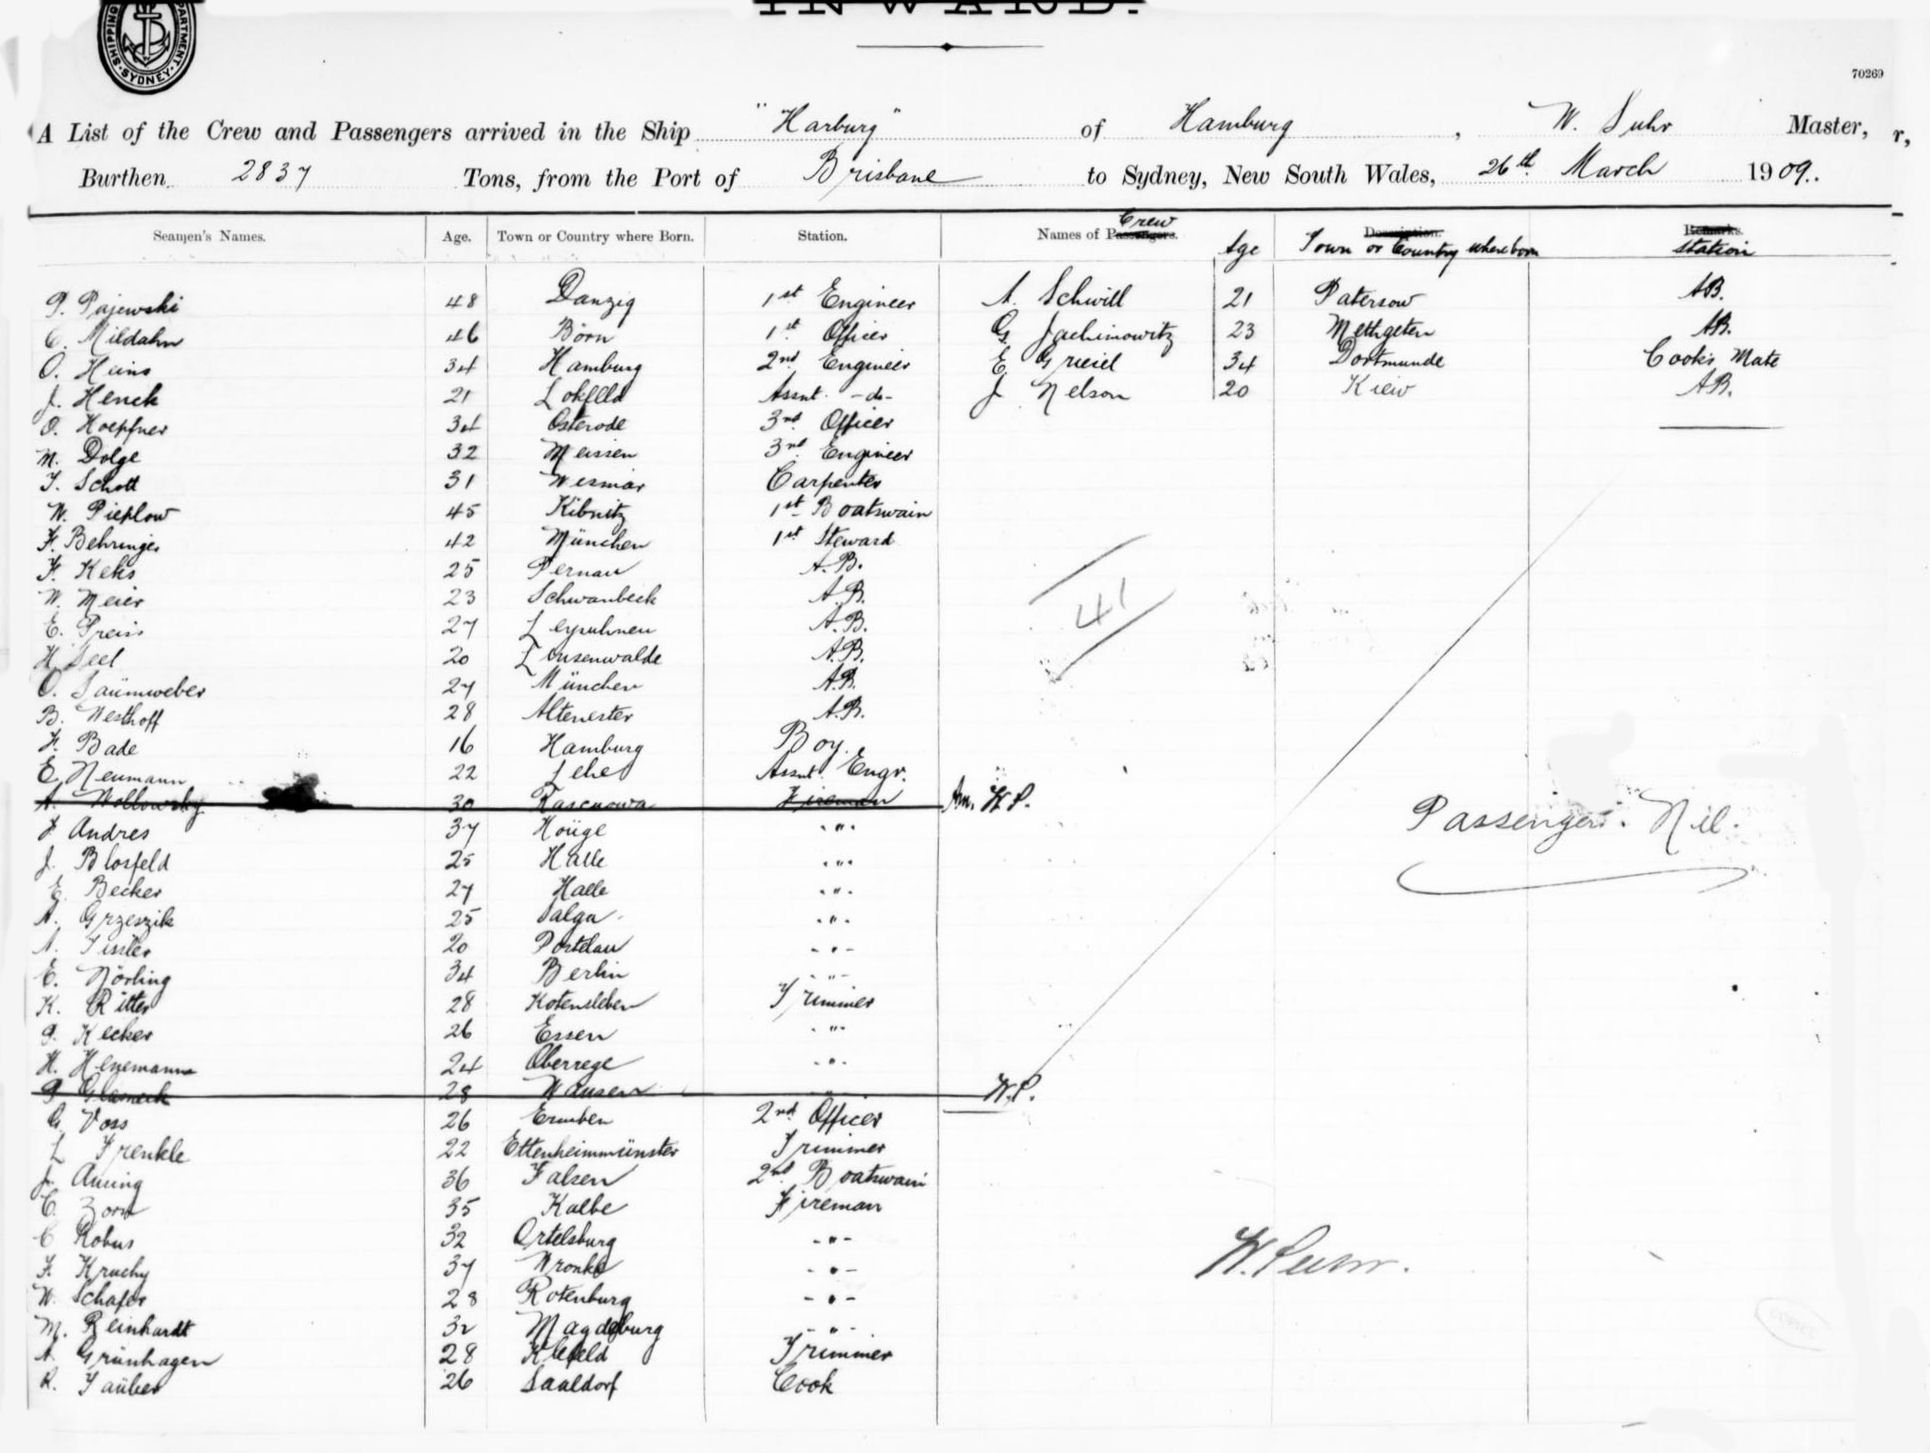 INWARD.
SHIPPING DEPARTMENT SYDNEY
70269
A List of the Crew and Passengers arrived in the Ship "Harburg" of Hamburg, W. Suhr Master,
Burthen 2837 Tons, from the Port of Brisbane to Sydney, New South Wales, 26th March 1909.
Seamen's Names. Age. Town or Country where Born. Station. Names of Passengers. Crew Age Description. Town or Country where born Remarks. Station
P. Pajewski 48 Danzig 1st Engineer A. Schwill 21 Patersow AB.
C. Mildahn 46 Börn 1st Officer G. Jachimowitz 23 Methgeten AB.
O. Heins 34 Hamburg 2nd Engineer E. 34 Dortmunde Cook's Mate
J. Henck 21 Assnt. -do- J. Nelson 20 Kiew AB.
O. Hoepfner 34 Osterode 3rd Officer
M. Dolge 32 Meissen 3rd Engineer
T. Schott 31 Wismar Carpenter
W. Pieplow 45 Ribnitz 1st Boatswain
F. Behringer 42 München 1st Steward
F. Keks 25 Pernau A.B.
W. Meier 23 Schwanbeck A.B.
E. Preiss 27 A.B.
H. Seel 20 A.B.
O. Saümweber 27 München A.B.
B. Westhoff 28 Altenester A.B.
F. Bade 16 Hamburg Boy.
E. Neumann 22 Lehe Assnt. Engr.
A. Wollowsky 30 Fireman W.P.
F. Andres 37 Houge "
J. Blosfeld 25 Halle "
E. Becker 27 Halle "
A. Grzeszik 25 Salga "
A. Tissler 20 Postelau "
E. Nörling 34 Berlin "
K. Ritter 28 Kotensleben Trimmer
P. Kecker 26 Essen "
H. Henemann 24 Oberrege "
P. 28 Wansen " W.P.
G. Voss 26 2nd Officer
L. Frenkle 22 Ettenheimmünster Trimmer
J. Auing 36 Falsen 2nd Boatswain
C. Zorn 35 Kalbe Fireman
C. Robus 32 Ortelsburg "
F. Kruchy 37 Wronke "
W. Schafer 28 Rotenburg "
M. Reinhardt 32 Magdeburg "
A. Grünhagen 28 Trimmer
R. Taüber 26 Saaldorf Cook
41
Passengers. Nil.
W. Suhr.